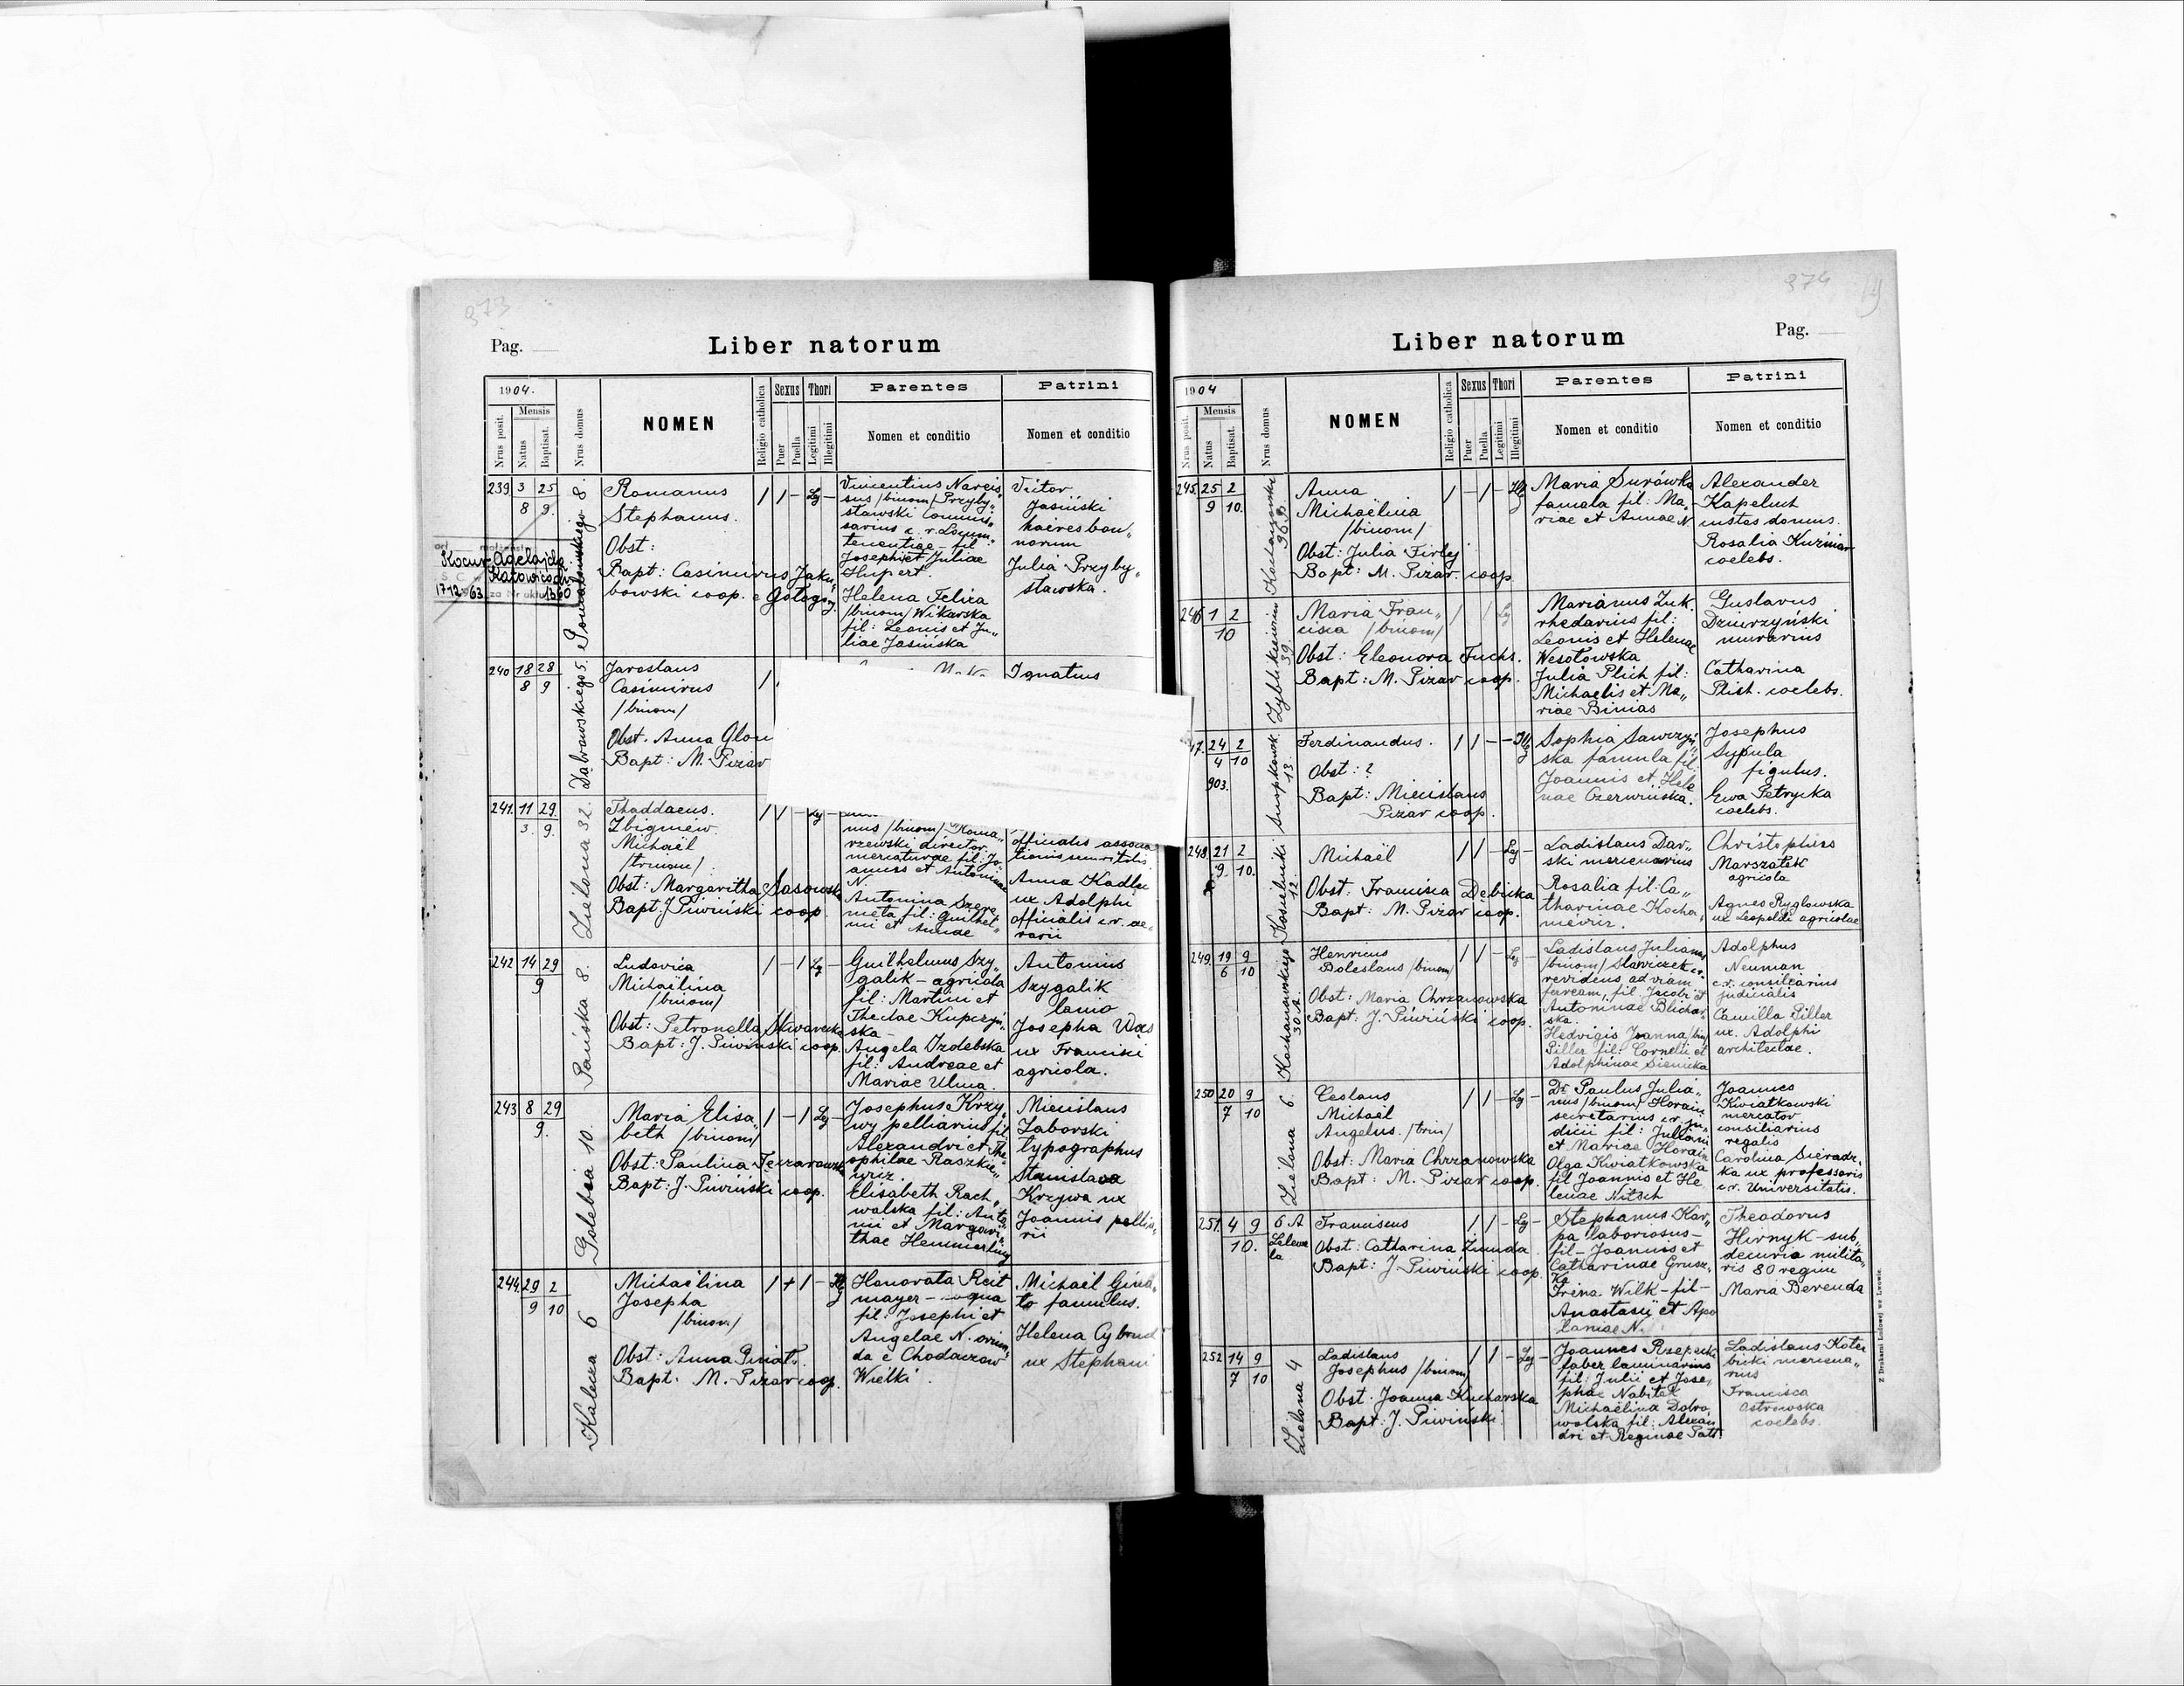 373
Pag.
Liber natorum
1904.
Nrus posit.
Mensis
Natus
Baptisat.
Nrus domus
NOMEN
Religio catholica
Sexus
Puer
Puella
Thori
Legitimi
Illegitimi
Parentes
Nomen et conditio
Patrini
Nomen et conditio
239 3 25
8 9.
Poniatowskiego 8.
Romanus
Stephanus.
Obst:
Bapt: Casimirus Jaku„
bowski coop. e Gołogóry
/ / - Leg -
Vincentius Narcis„
sus /binom/ Przyby„
sławski Commis„
sarius c. r. Locum„
tenentiae - fil
Josephi et Juliae
Hupert.
Helena Felixa
/binom/ Wikarska
fil: Leonis et Ju„
liae Jasińska
Victor
Jasiński
haeres bon„
norum
Julia Przyby„
sławska.
Kocur Adelajda
Katowice
17 12 63 za Nr aktu 1360
240 18 28
8 9
Dąbrowskiego 5.
Jaroslaus
Casimirus
/binom/
Obst. Anna
Bapt: M. Pizar
/
Ignatius
241. 11 29.
3. 9.
Zielona 32.
Thaddaeus.
Zbigniew.
Michaël
/trinom/
Obst: Margaritha Sasowska
Bapt: J. Piwiński coop.
/ / - Leg -
nus /binom/
rzewski director
mercaturae fil: Jo„
annis et Antoninae
N.
Antonina Szere„
meta fil: Guilhel„
mi et Annae
officialis associa
tionis
Anna Kadlec
ux Adolphi
officialis c. r. ae„
rarii
242 14 29
9
Pańska 8.
Ludovica
Michaëlina
/binom/
Obst: Petronella Skwarecka
Bapt: J. Piwiński coop.
/ - / Leg -
Guilhelmus Szy„
galik - agricola
fil: Martini et
Theclae Kupczyń„
ska -
Angela Izdebska
fil: Andreae et
Mariae Ulma.
Antonius
Szygalik
lanio
Josepha Wąs
ux Francisci
agricola.
243 8 29
9.
Gołębia 10.
Maria Elisa„
beth /binom/
Obst: Paulina
Bapt: J. Piwiński coop.
/ - / Leg -
Josephus Krzy„
wy pelliarius fil
Alexandri et The
ophilae Raszkie„
wicz.
Elisabeth Rach„
walska fil: Anto
nii et Marga„
thae Hemmerling
Miecislaus
Zaborski
typographus
Stanislava
Krzywa ux
Joannis pellia„
rii
244 29 2
9 10
Kalecza 6
Michaëlina
Josepha
/binom/
Obst: Anna
Bapt: M. Pizar coop.
/ + / - Illg
Honorata Reit
mayer -
fil: Josephi et
Angelae N. oriun„
da e Chodaczow
Wielki.
Michaël
to famulus.
Helena
ux Stephani
374
Pag.
Liber natorum
1904
Nrus posit.
Mensis
Natus
Baptisat.
Nrus domus
NOMEN
Religio catholica
Sexus
Puer
Puella
Thori
Legitimi
Illegitimi
Parentes
Nomen et conditio
Patrini
Nomen et conditio
245. 25 2
9 10.
Anna
Michaëlina
/binom/
Obst: Julia Firlej
Bapt: M. Pizar. coop.
/ - / - Illg
Maria Surówka
famula fil: Ma„
riae et Annae N
Alexander
Kapeluch
custos domus.
Rosalia Kuźniar
coelebs.
246 1 2
10
39
Maria Fran„
cisca /binom/
Obst: Eleonora Fuchs.
Bapt: M. Pizar coop.
/ / Leg
Marianus Żuk.
rhedarius fil:
Leonis et Helenae
Wesołowska
Julia Plich fil:
Michaelis et Ma„
riae Binias
Gustavus
Dzierzyński
murarius
Catharina
Plich. coelebs.
247. 24 2
4 10
903.
13.
Ferdinandus.
Obst: ?
Bapt: Miecislaus
Pizar coop.
/ / - - Illg
Sophia Sawczyń„
ska famula fil.
Joannis et Hele
nae Czerwińska.
Josephus
Sypula
figulus.
Ewa Petrycka
coelebs.
248. 21 2
9. 10.
12.
Michaël
Obst: Francisca Dębicka
Bapt: M. Pizar coop.
/ / - Leg -
Ladislaus Dar„
ski mercenarius
Rosalia fil: Ca„
tharinae Kocha„
niewicz.
Christophus
Marszałek
agricola
Agnes Ryglowska
ux Leopoldi agricolae
249. 19 9
6 10
Kochanowskiego
30 A.
Henricus
Boleslaus /binom/
Obst: Maria Chrzanowska
Bapt: J. Piwiński coop.
/ / - Leg -
Ladislaus Julianus
/binom/ Slawiczek c. r.
revidens ad viam
ferream, fil Jacobi et
Antoninae Blichar„
ska.
Hedvigis Joanna /bin/
Piller fil: Cornelii et
Adolphinae Sienicka
Adolphus
Neuman
c. r. consiliarius
judicialis
Camilla Piller
ux. Adolphi
architectae.
250 20 9
7 10
Zielona 6.
Ceslaus
Michaël
Angelus. /trin/
Obst: Maria Chrzanowska
Bapt: M. Pizar coop.
/ / - Leg -
Dr. Paulus Julia„
nus /binom/ Horain
secretarius c. r. ju„
dicii fil: Juliani
et Mariae Horain
Olga Kwiatkowska
fil Joannis et He
lenae Nitsch
Joannes
Kwiatkowski
mercator
consiliarius
regalis
Carolina Sieradz„
ka ux professoris
c. r. Universitatis.
251. 4 9
10.
6 A
Lelewe
la
Franciscus
Obst: Catharina Żmuda
Bapt: J. Piwiński coop.
/ / - Leg -
Stephanus Kar„
pa laboriosus -
fil - Joannis et
Catharinae Grusz„
ka
Irena Wilk - fil -
Anastasii et Apo
loniae N.
Theodorus
Hirnyk - sub„
decurio milita„
ris 80 regim
Maria Berenda
252 14 9
7 10
Zielona 4
Ladislaus
Josephus /binom/
Obst: Joanna Kucharska
Bapt: J. Piwiński.
/ / - Leg -
Joannes Rzepecki
faber laminarius
fil: Julii et Jose„
phae Nabitek
Michaëlina Dobro
wolska fil: Alexan
dri et Reginae Patt.
Ladislaus Koter
bicki mercena„
rius
Francisca
Ostrowska
coelebs.
Z Drukarni Ludowej we Lwowie.